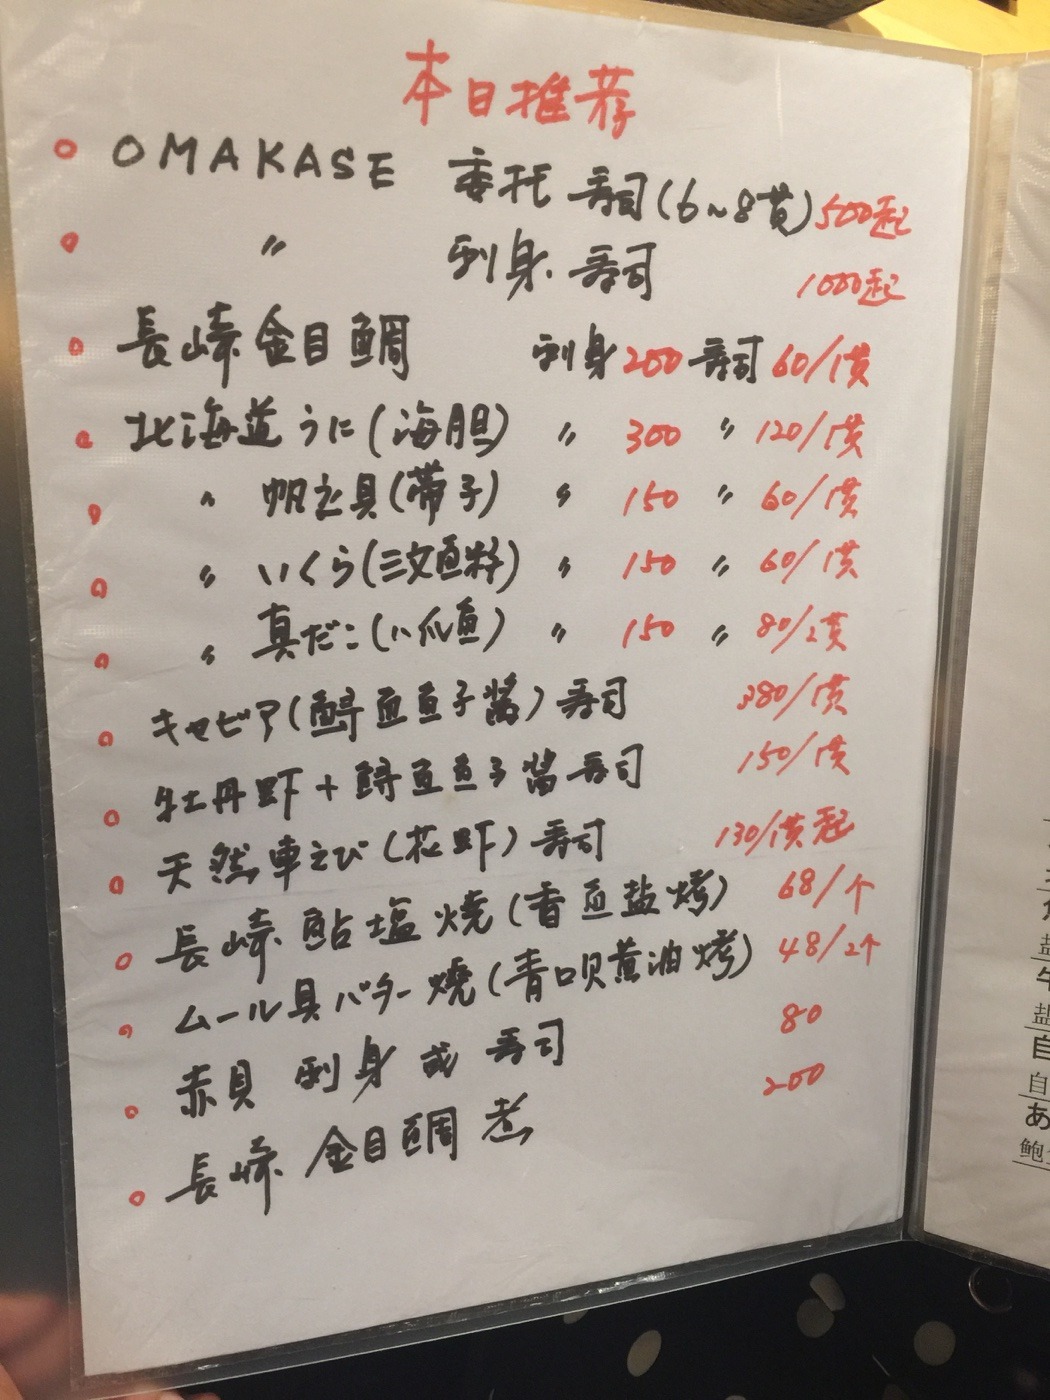 本日推荐
OMAKASE 委托 寿司(6~8貫) 500起
〃 刺身.寿司 1000起
長崎 金目鯛 刺身 200 寿司 60/1貫
北海道 うに(海胆) 〃 300 〃 120/1貫
〃 帆立貝(帯子) 〃 150 〃 60/1貫
〃 いくら(三文鱼籽) 〃 150 〃 60/1貫
〃 真だこ(八爪鱼) 〃 150 〃 80/2貫
キャビア(鲟鱼鱼子醤) 寿司 380/1貫
牡丹虾+鲟鱼鱼子醤寿司 150/1貫
天然車えび(花虾) 寿司 130/1貫起
長崎 鮎塩焼(香鱼盐烤) 68/个
ムール貝バター焼(青口贝黄油烤) 48/2个
赤貝 刺身 或 寿司 80
長崎 金目鯛 煮 200
盐
牛
盐
自
自
あ
鲍